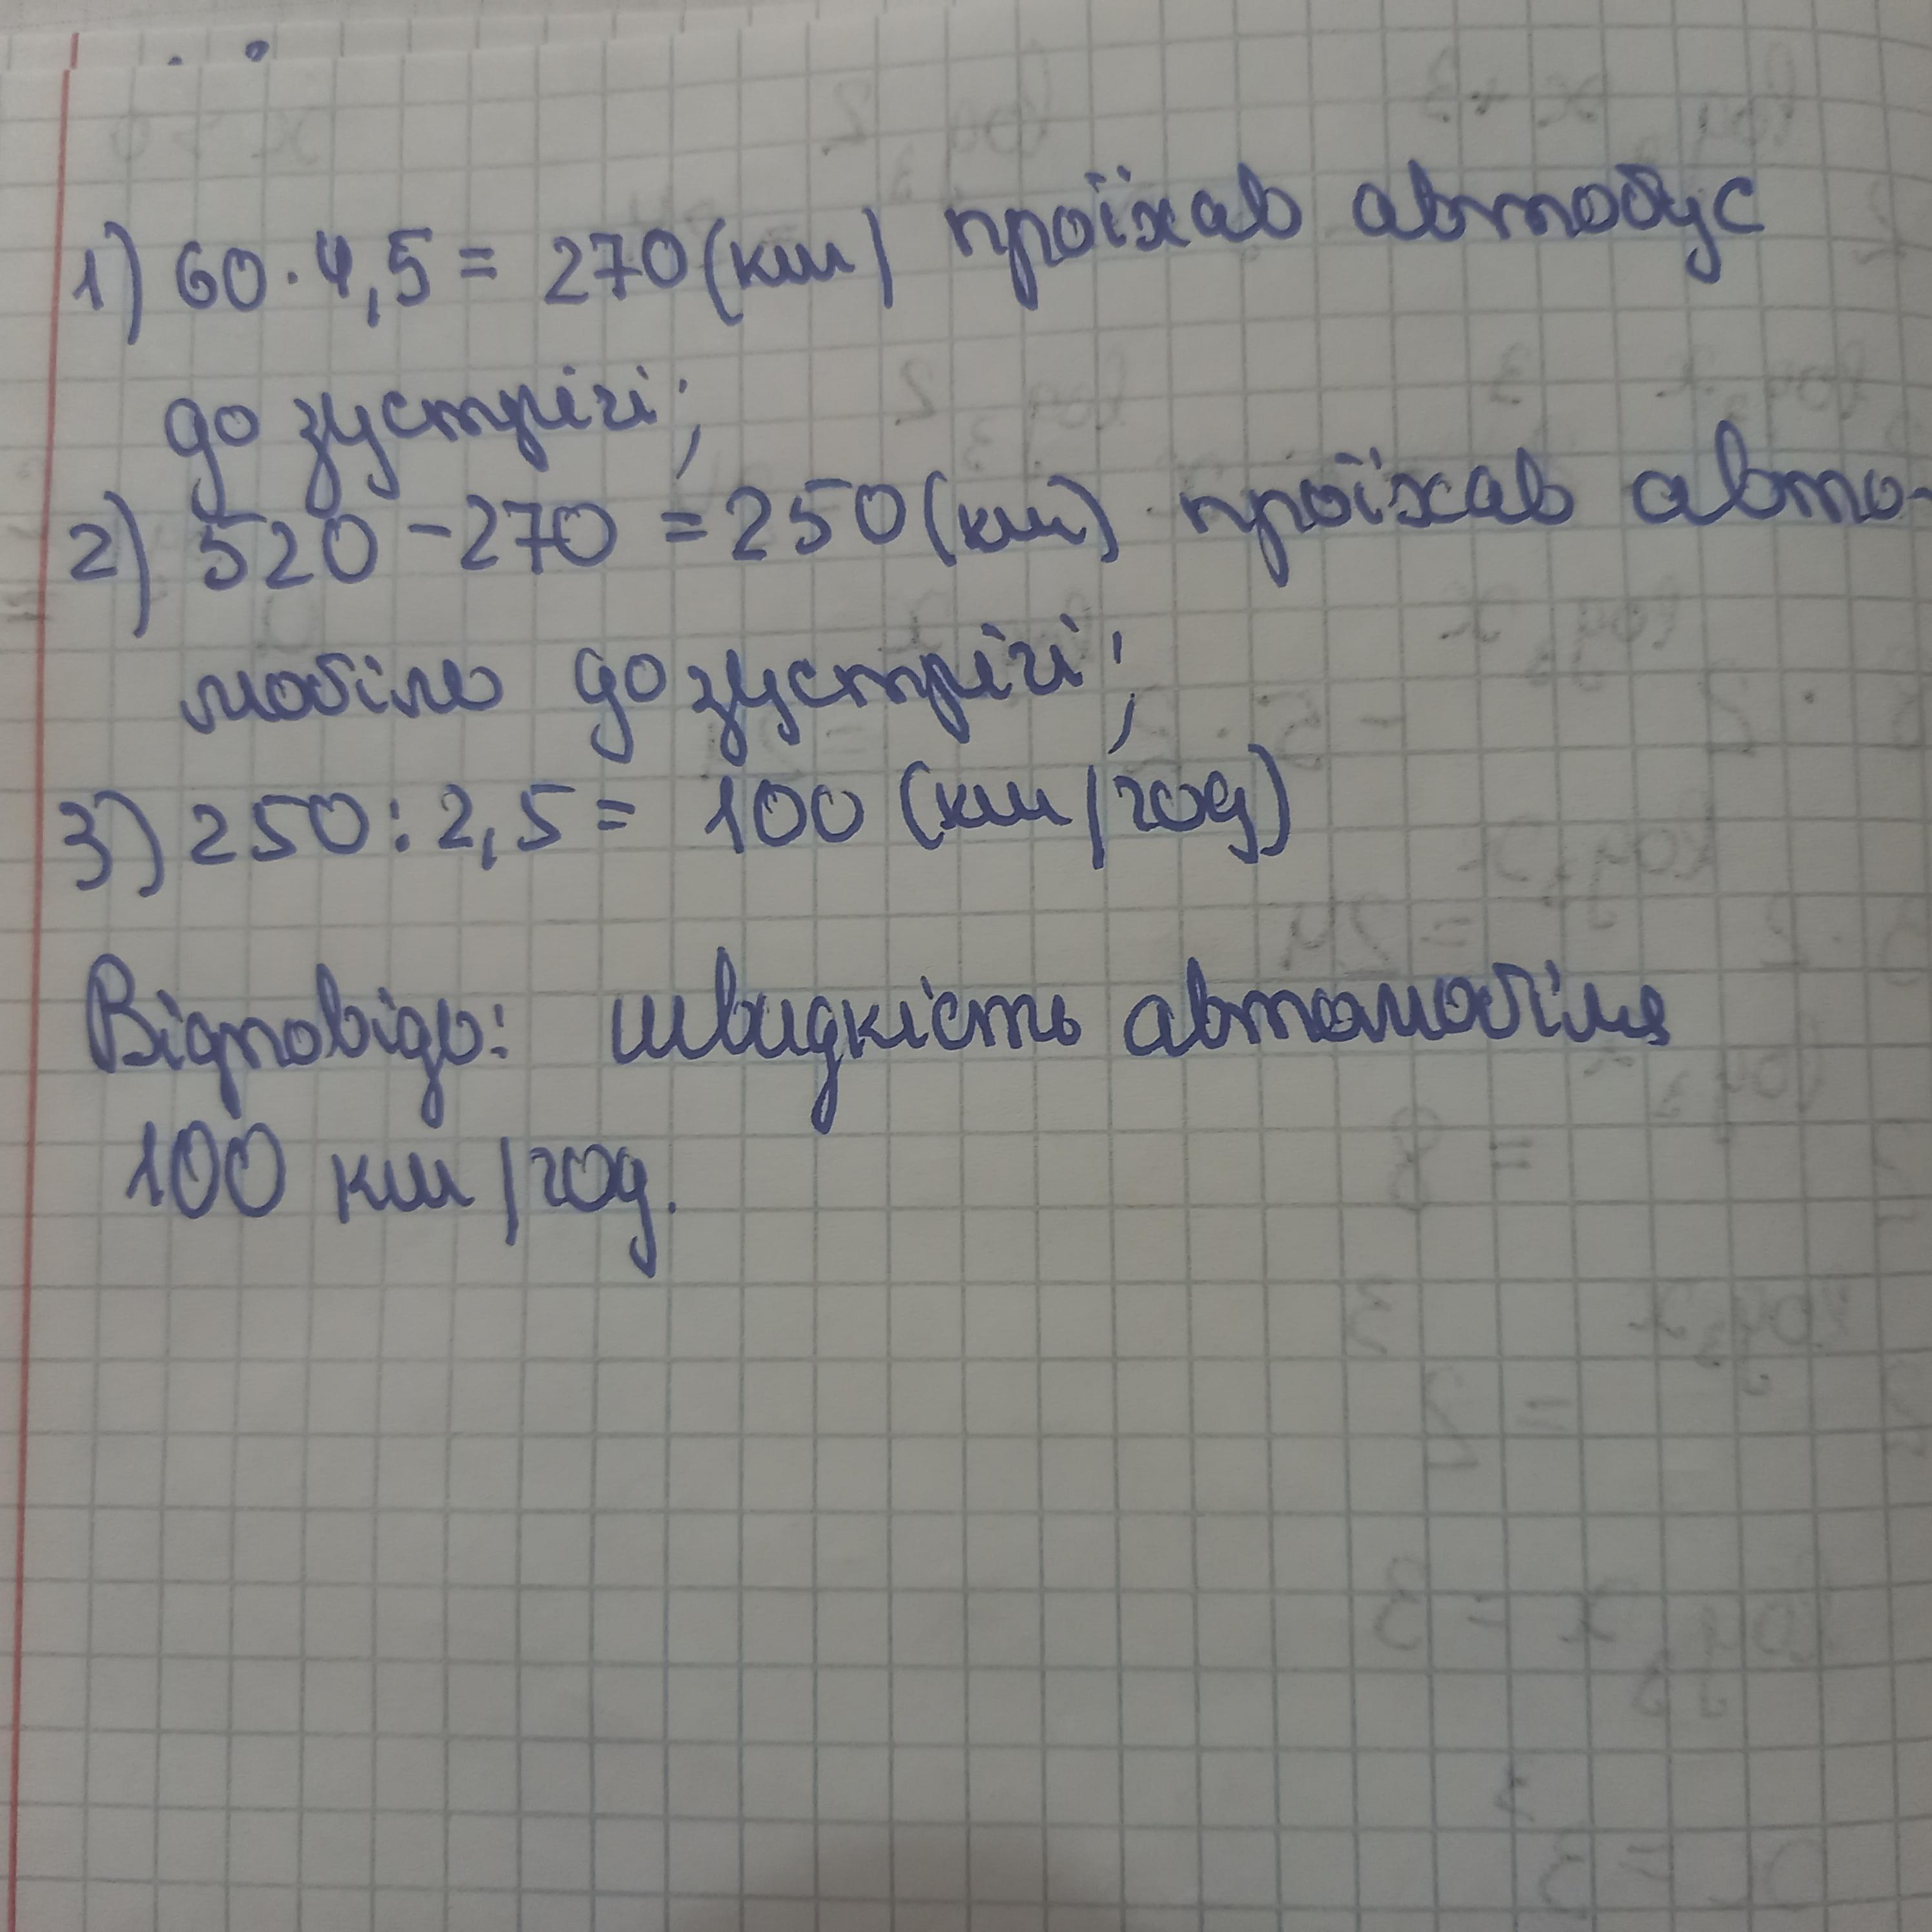 1) 60 · 4,5 = 270 (км) проїхав автобус
до зустрічі;
2) 520 - 270 = 250 (км) проїхав авто-
мобіль до зустрічі;
3) 250 : 2,5 = 100 (км/год)
Відповідь: швидкість автомобіля
100 км/год.